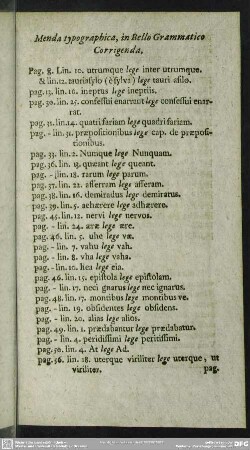 Menda typographica, in Bello Grammatico
Corrigenda.
Pag. 8. Lin. 10. utrumque lege inter utrumque.
& lin.12. tauriasylo (è sylvi) lege tauri asilo.
pag. 13. lin. 10. ineptus lege ineptiis.
pag. 30. lin. 25. confessui enarrant lege confessui enar-
rat.
pag. 31. lin.14. quatri fariam lege quadri fariam.
pag. - lin. 31. præpositionibus lege cap. de præposi-
tionibus.
pag. 33. lin. 2. Nunque lege Nunquam.
pag. 36. lin. 13. queant lege queant.
pag. - lin. 18. rarum lege parum.
pag. 37. lin. 22. afferram lege afferam.
pag. 38. lin. 16. demiradus lege demirarus.
pag. 39. lin. 5. aehærere lege adhærere.
pag. 45. lin. 12. nervi lege nervos.
pag. - lin. 24. aræ lege ære.
pag. 46. lin. 5. uhe lege væ.
pag. - lin. 7. vahu lege vah.
pag. - lin. 8. vha lege vaha.
pag. - lin. 10. hea lege eia.
pag. 46. lin. 15. epistola lege epistolam.
pag. - lin. 17. neci gnarus lege nec ignarus.
pag. 48. lin. 17. montibus lege montibus ve.
pag. - lin. 19. obsidentes lege obsidens.
pag. - lin. 20. alias lege alios.
pag. 49. lin. 1. prædabantur lege prædabatur.
pag. - lin. 4. peridissimi lege peridissimi.
pag. 50. lin. 4. At lege Ad.
pag. 56. lin. 18. uterque viriliter lege uterque, ut
viriliter. pag.